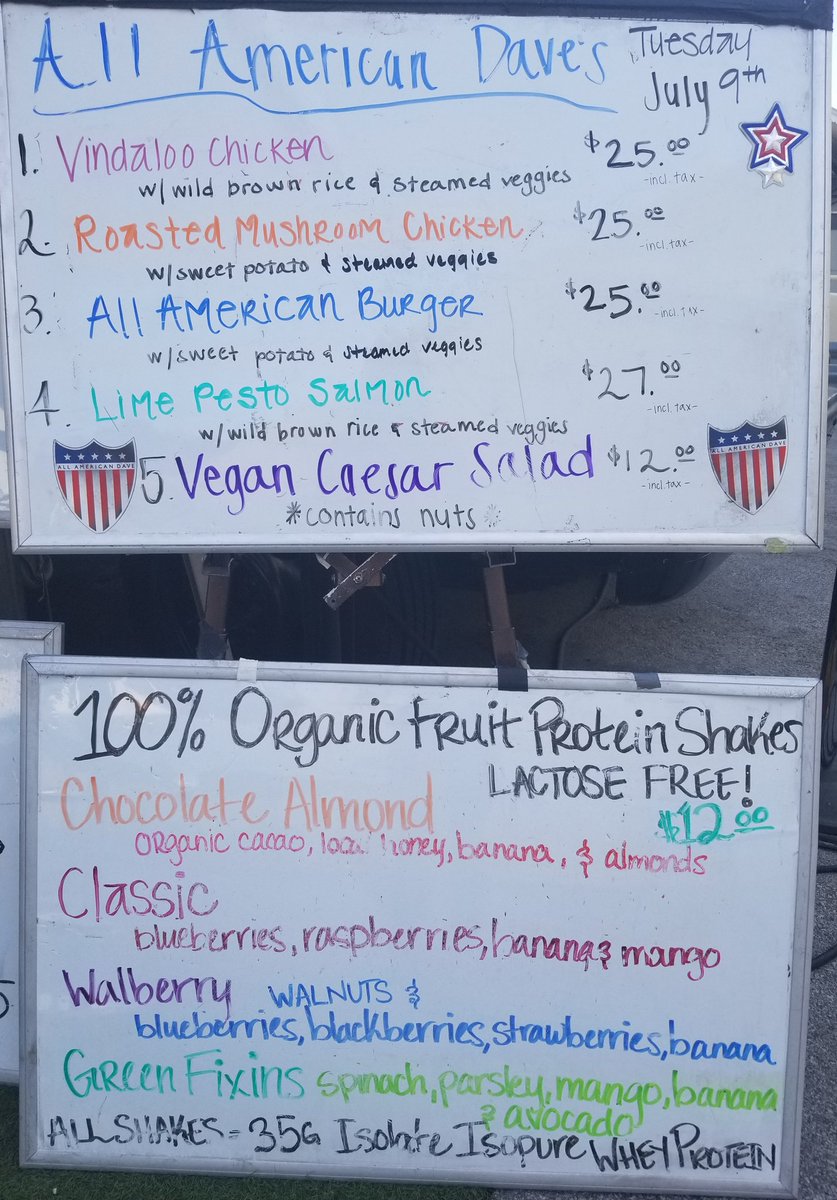 All American Dave's
Tuesday
July 9th
1. Vindaloo Chicken $25.00
w/wild brown rice & steamed veggies -incl. tax-
2. Roasted Mushroom Chicken $25.00
w/sweet potato & steamed veggies -incl. tax-
3. All American Burger $25.00
w/sweet potato & steamed veggies -incl. tax-
4. Lime Pesto Salmon $27.00
w/wild brown rice & steamed veggies -incl. tax-
ALL AMERICAN DAVE
5. Vegan Caesar Salad $12.00
ALL AMERICAN DAVE
*contains nuts* -incl. tax-
100% Organic Fruit Protein Shakes
LACTOSE FREE!
Chocolate Almond $12.00
organic cacao, local honey, banana, & almonds
Classic
blueberries, raspberries, banana & mango
Walberry WALNUTS &
blueberries, blackberries, strawberries, banana
Green Fixins spinach, parsley, mango, banana
& avocado
ALL SHAKES = 35G Isolate Isopure WHEY PROTEIN
5